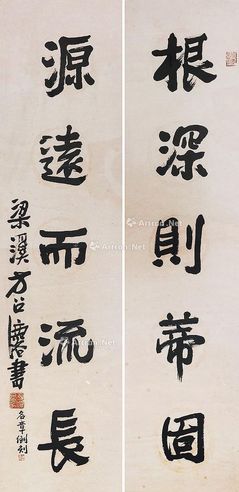 根深則蒂固
源遠而流長
梁溪方召麐書
Artron.Net
Artron.Net